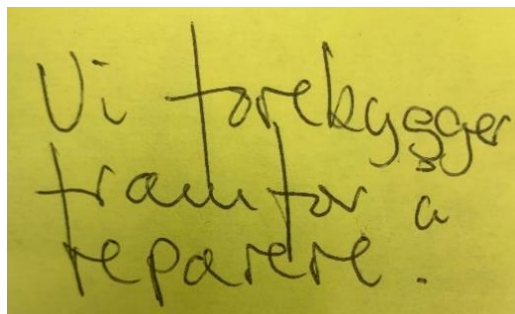 Vi forebygger
framfor å
reparere.